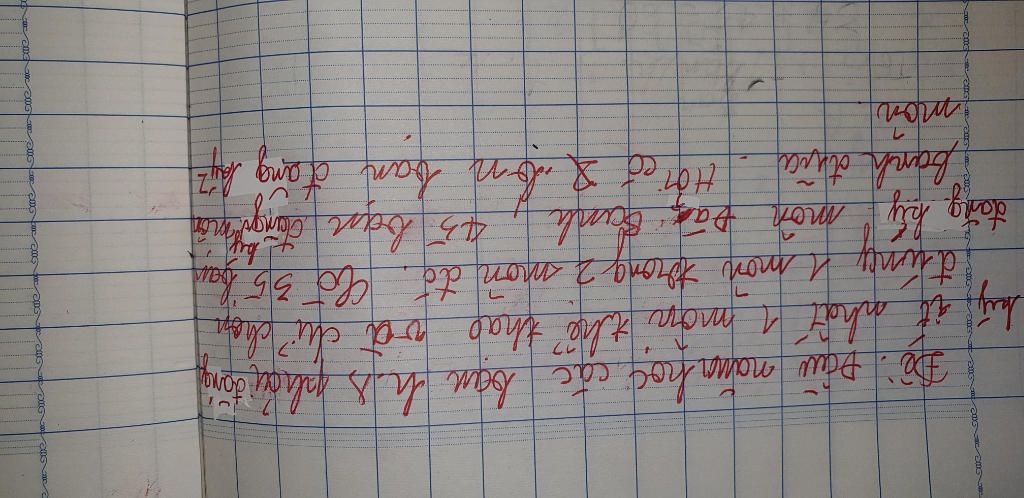 Đề: Đầu năm học các bạn h.s phải đăng
ký ít nhất 1 môn thể thao và chỉ chọn
đúng 1 môn trong 2 môn đó. Có 35 bạn
đăng ký môn Đá banh 45 bạn đăng ký môn
banh đũa. Hỏi có b.n bạn đăng ký 2
môn